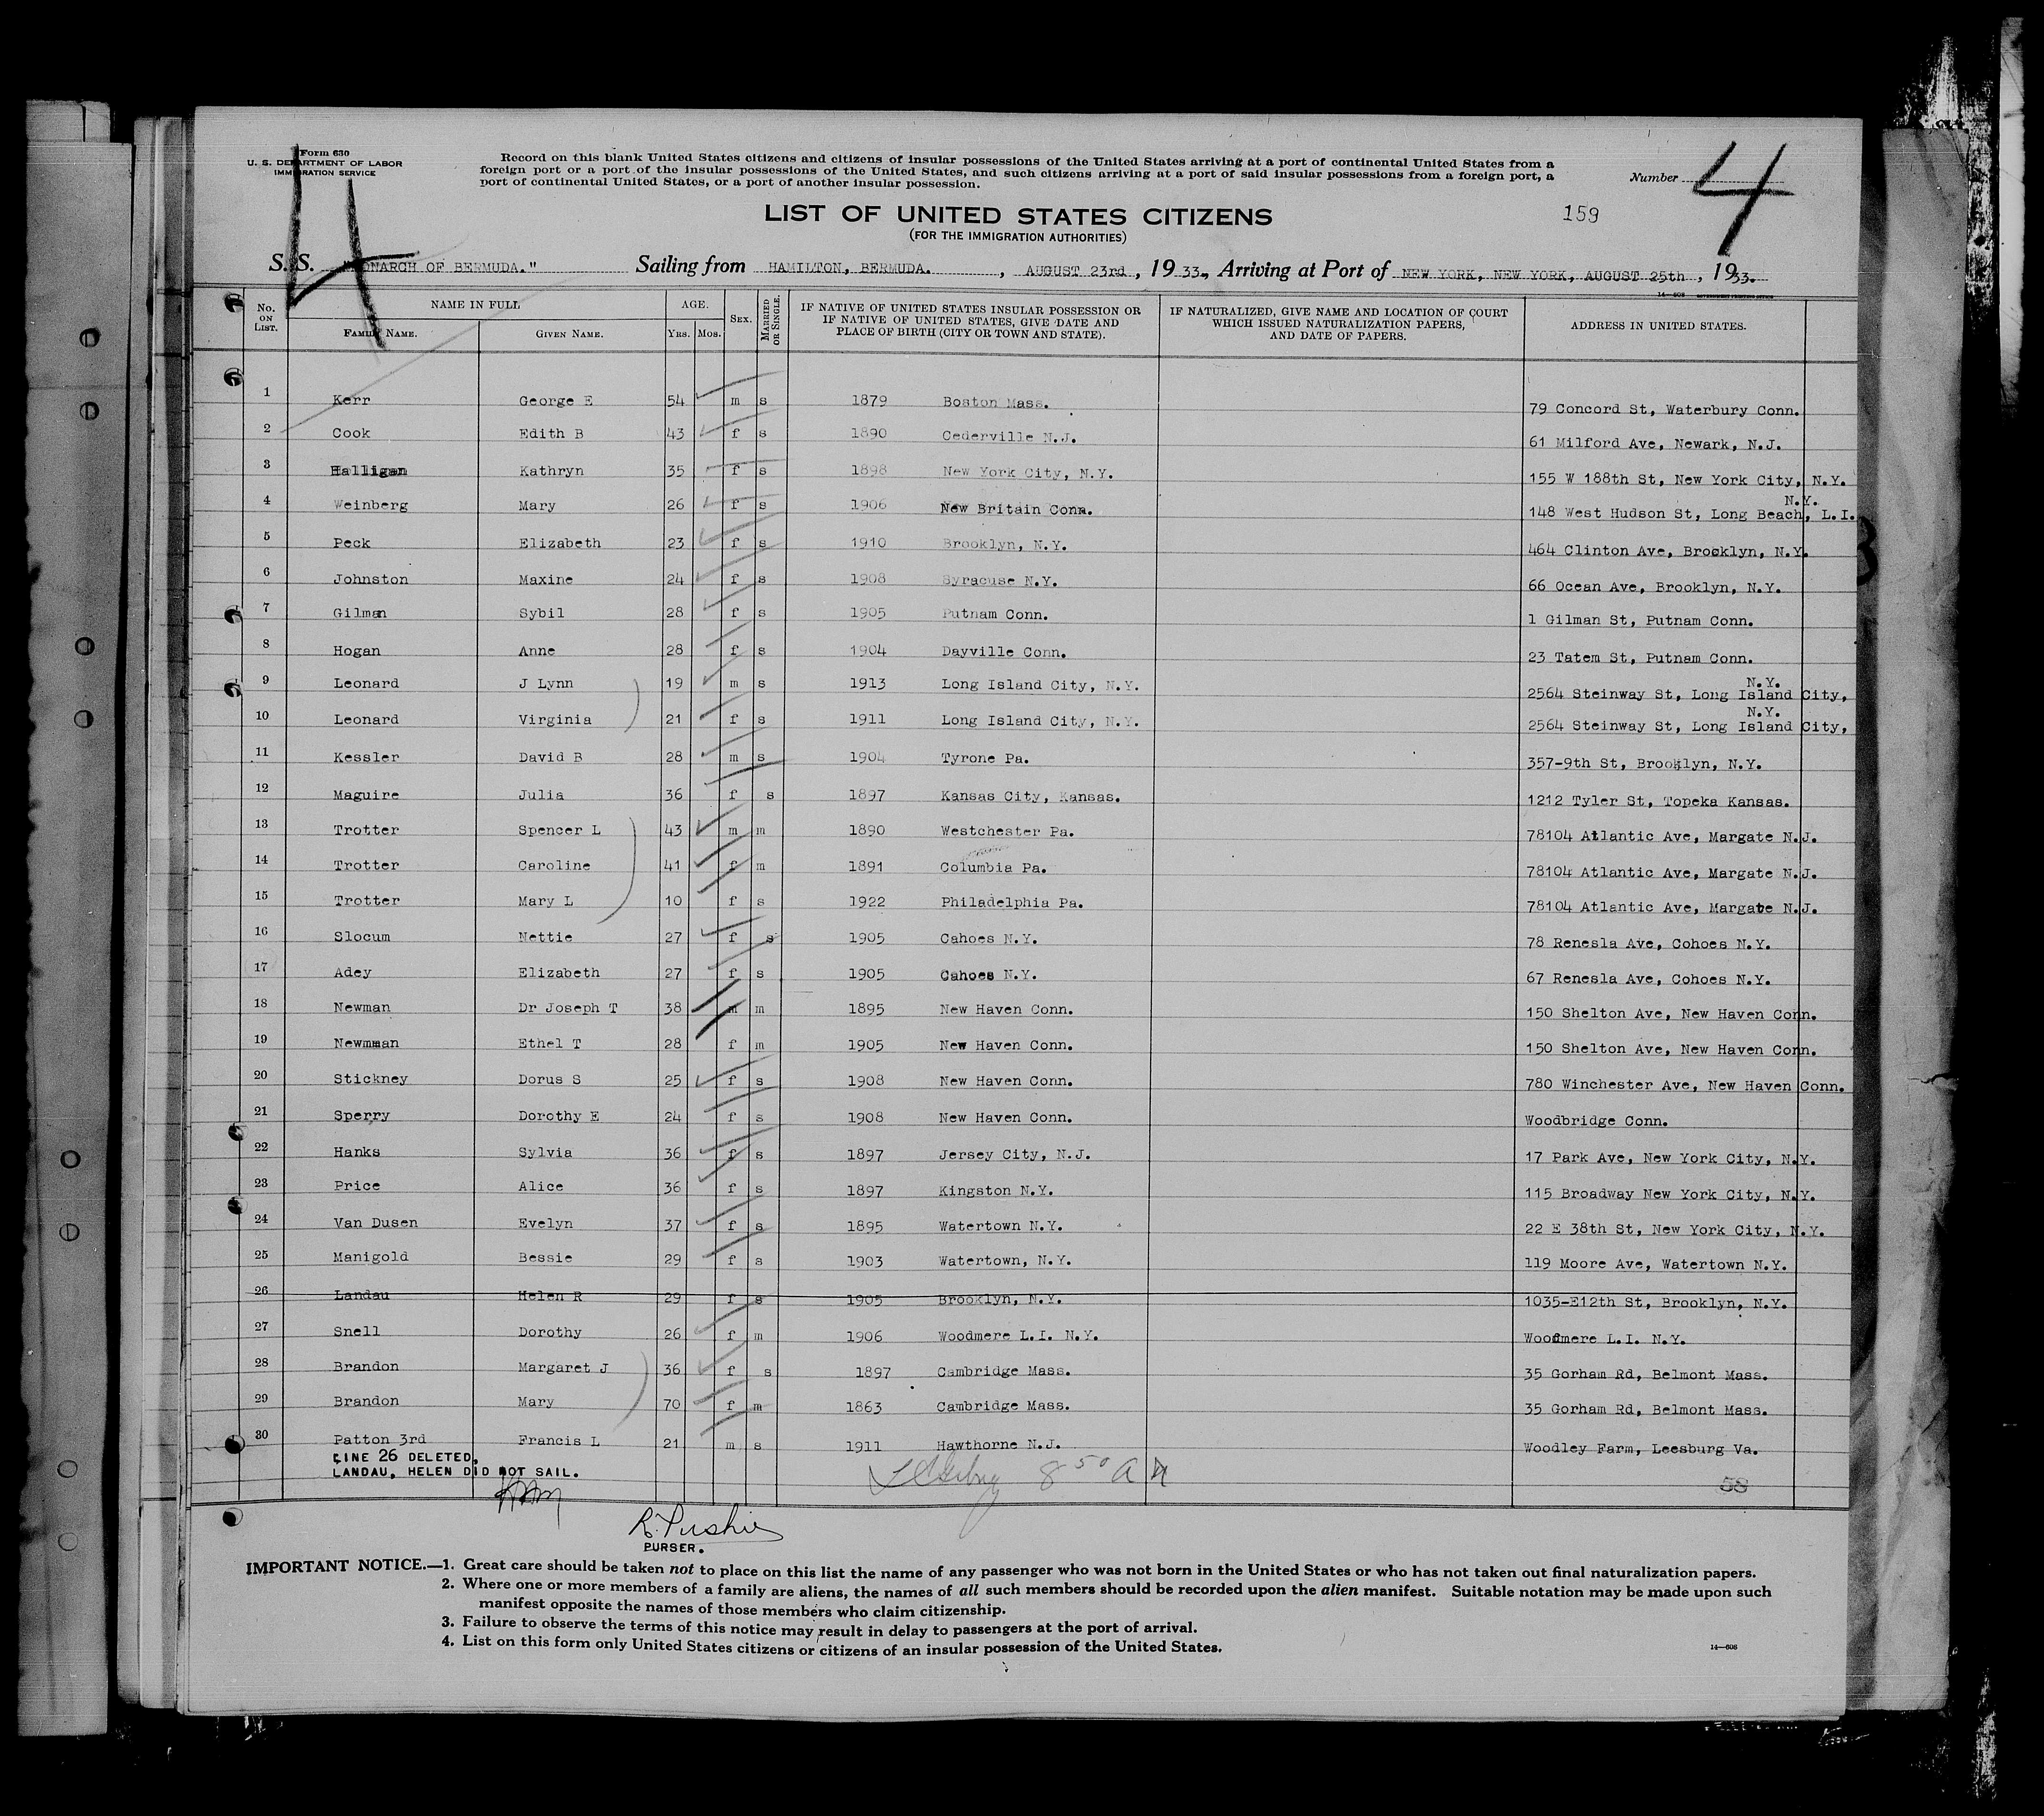 Form 630
U. S. DEPARTMENT OF LABOR
IMMIGRATION SERVICE
Record on this blank United States citizens and citizens of insular possessions of the United States arriving at a port of continental United States from a
foreign port or a port of the insular possessions of the United States, and such citizens arriving at a port of said insular possessions from a foreign port, a
port of continental United States, or a port of another insular possession.
Number 4
4
LIST OF UNITED STATES CITIZENS
159
(FOR THE IMMIGRATION AUTHORITIES)
S. S. "MONARCH OF BERMUDA." Sailing from HAMILTON, BERMUDA. , AUGUST 23rd , 19 33., Arriving at Port of NEW YORK, NEW YORK, AUGUST 25th , 1933.
14—608 GOVERNMENT PRINTING OFFICE
No. ON LIST. NAME IN FULL FAMILY NAME. GIVEN NAME. AGE. YRS. MOS. SEX. MARRIED OR SINGLE. IF NATIVE OF UNITED STATES INSULAR POSSESSION OR IF NATIVE OF UNITED STATES, GIVE DATE AND PLACE OF BIRTH (CITY OR TOWN AND STATE). IF NATURALIZED, GIVE NAME AND LOCATION OF COURT WHICH ISSUED NATURALIZATION PAPERS, AND DATE OF PAPERS. ADDRESS IN UNITED STATES.
1 Kerr George E 54 m s 1879 Boston Mass. 79 Concord St, Waterbury Conn.
2 Cook Edith B 43 f s 1890 Cederville N.J. 61 Milford Ave, Newark, N.J.
3 Halligan Kathryn 35 f s 1898 New York City, N.Y. 155 W 188th St, New York City, N.Y.
4 Weinberg Mary 26 f s 1906 New Britain Conn. 148 West Hudson St, Long Beach, L.I. N.Y.
5 Peck Elizabeth 23 f s 1910 Brooklyn, N.Y. 464 Clinton Ave, Brooklyn, N.Y.
6 Johnston Maxine 24 f s 1908 Syracuse N.Y. 66 Ocean Ave, Brooklyn, N.Y.
7 Gilman Sybil 28 f s 1905 Putnam Conn. 1 Gilman St, Putnam Conn.
8 Hogan Anne 28 f s 1904 Dayville Conn. 23 Tatem St, Putnam Conn.
9 Leonard J Lynn 19 m s 1913 Long Island City, N.Y. 2564 Steinway St, Long Island City, N.Y.
10 Leonard Virginia 21 f s 1911 Long Island City, N.Y. 2564 Steinway St, Long Island City, N.Y.
11 Kessler David B 28 m s 1904 Tyrone Pa. 357-9th St, Brooklyn, N.Y.
12 Maguire Julia 36 f s 1897 Kansas City, Kansas. 1212 Tyler St, Topeka Kansas.
13 Trotter Spencer L 43 m m 1890 Westchester Pa. 78104 Atlantic Ave, Margate N.J.
14 Trotter Caroline 41 f m 1891 Columbia Pa. 78104 Atlantic Ave, Margate N.J.
15 Trotter Mary L 10 f s 1922 Philadelphia Pa. 78104 Atlantic Ave, Margate N.J.
16 Slocum Nettie 27 f s 1905 Cahoes N.Y. 78 Renesla Ave, Cohoes N.Y.
17 Adey Elizabeth 27 f s 1905 Cahoes N.Y. 67 Renesla Ave, Cohoes N.Y.
18 Newman Dr Joseph T 38 m m 1895 New Haven Conn. 150 Shelton Ave, New Haven Conn.
19 Newmman Ethel T 28 f m 1905 New Haven Conn. 150 Shelton Ave, New Haven Conn.
20 Stickney Dorus S 25 f s 1908 New Haven Conn. 780 Winchester Ave, New Haven Conn.
21 Sperry Dorothy E 24 f s 1908 New Haven Conn. Woodbridge Conn.
22 Hanks Sylvia 36 f s 1897 Jersey City, N.J. 17 Park Ave, New York City, N.Y.
23 Price Alice 36 f s 1897 Kingston N.Y. 115 Broadway New York City, N.Y.
24 Van Dusen Evelyn 37 f s 1895 Watertown N.Y. 22 E 38th St, New York City, N.Y.
25 Manigold Bessie 29 f s 1903 Watertown, N.Y. 119 Moore Ave, Watertown N.Y.
26 Landau Helen R 29 f s 1905 Brooklyn, N.Y. 1035-E12th St, Brooklyn, N.Y.
27 Snell Dorothy 26 f m 1906 Woodmere L.I. N.Y. Woodmere L.I. N.Y.
28 Brandon Margaret J 36 f s 1897 Cambridge Mass. 35 Gorham Rd, Belmont Mass.
29 Brandon Mary 70 f m 1863 Cambridge Mass. 35 Gorham Rd, Belmont Mass.
30 Patton 3rd Francis L 21 m s 1911 Hawthorne N.J. Woodley Farm, Leesburg Va.
LINE 26 DELETED,
LANDAU, HELEN DID NOT SAIL.
8 50 A M
58
R. Pushie
PURSER.
IMPORTANT NOTICE.—1. Great care should be taken not to place on this list the name of any passenger who was not born in the United States or who has not taken out final naturalization papers.
2. Where one or more members of a family are aliens, the names of all such members should be recorded upon the alien manifest. Suitable notation may be made upon such
manifest opposite the names of those members who claim citizenship.
3. Failure to observe the terms of this notice may result in delay to passengers at the port of arrival.
4. List on this form only United States citizens or citizens of an insular possession of the United States.
14—608